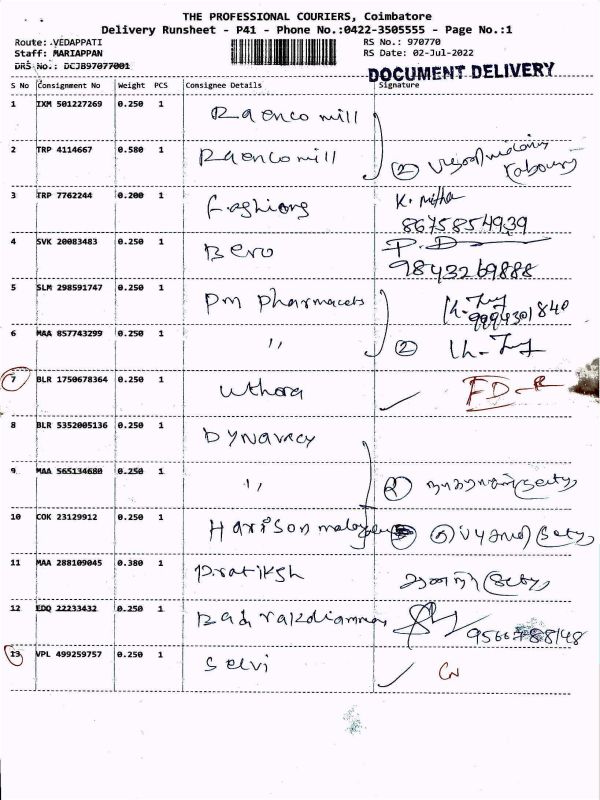 THE PROFESSIONAL COURIERS, Coimbatore
Delivery Runsheet - P41 - Phone No.:0422-3505555 - Page No.:1
Route: VEDAPPATI RS No.: 970770
Staff: MARIAPPAN RS Date: 02-Jul-2022
DRS No.: DCJB97077001
DOCUMENT DELIVERY
S No Consignment No Weight PCS Consignee Details Signature
1 IXM 501227269 0.250 1 Raenco mill
2 TRP 4114667 0.580 1 Raenco mill 2
3 TRP 7762244 0.200 1 Fashions K. nitha
8675854939
4 SVK 20083483 0.250 1 Bero P.D
9843269888
5 SLM 298591747 0.250 1 Pm Pharmacets
9994301840
6 MAA 857743299 0.250 1 " 2
7 BLR 1750678364 0.250 1 Uthora FD
8 BLR 5352005136 0.250 1 Dynavacy
9 MAA 565134680 0.250 1 " 2
10 COK 23129912 0.250 1 Harrison
11 MAA 288109045 0.380 1 Pratiksh
12 EDQ 22233432 0.250 1 9566788148
13 VPL 499259757 0.250 1 Selvi